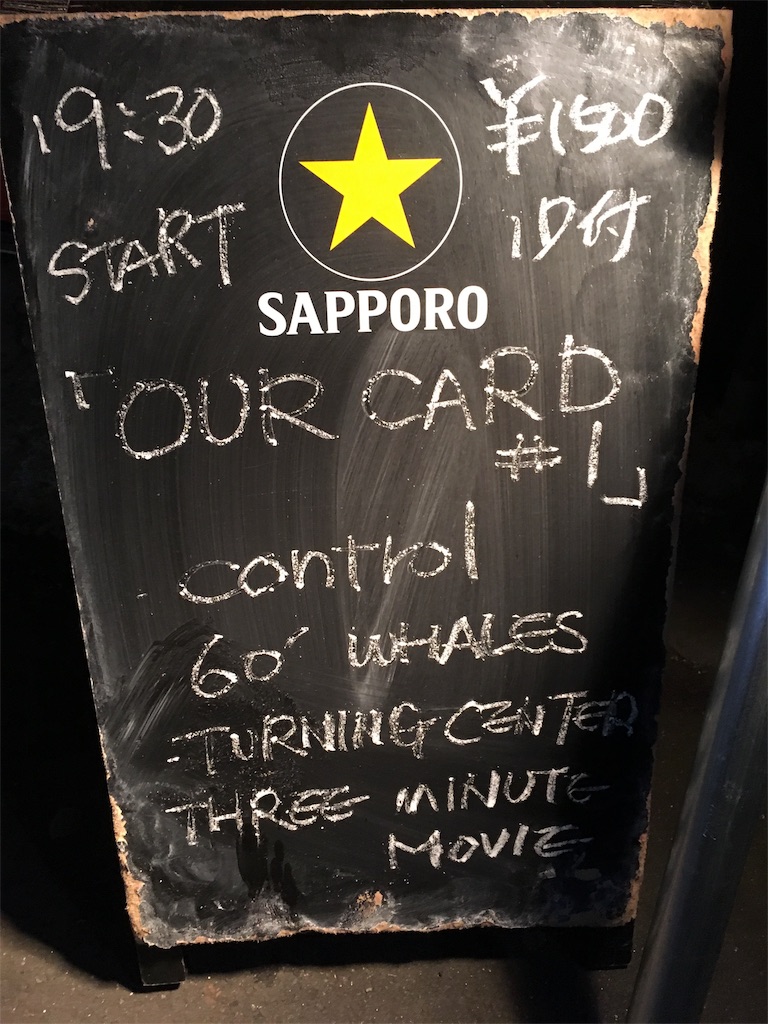 19:30
START
SAPPORO
¥1500
1D付
「OUR CARD
#1」
control
60' WHALES
TURNING CENTER
THREE MINUTE
MOVIE